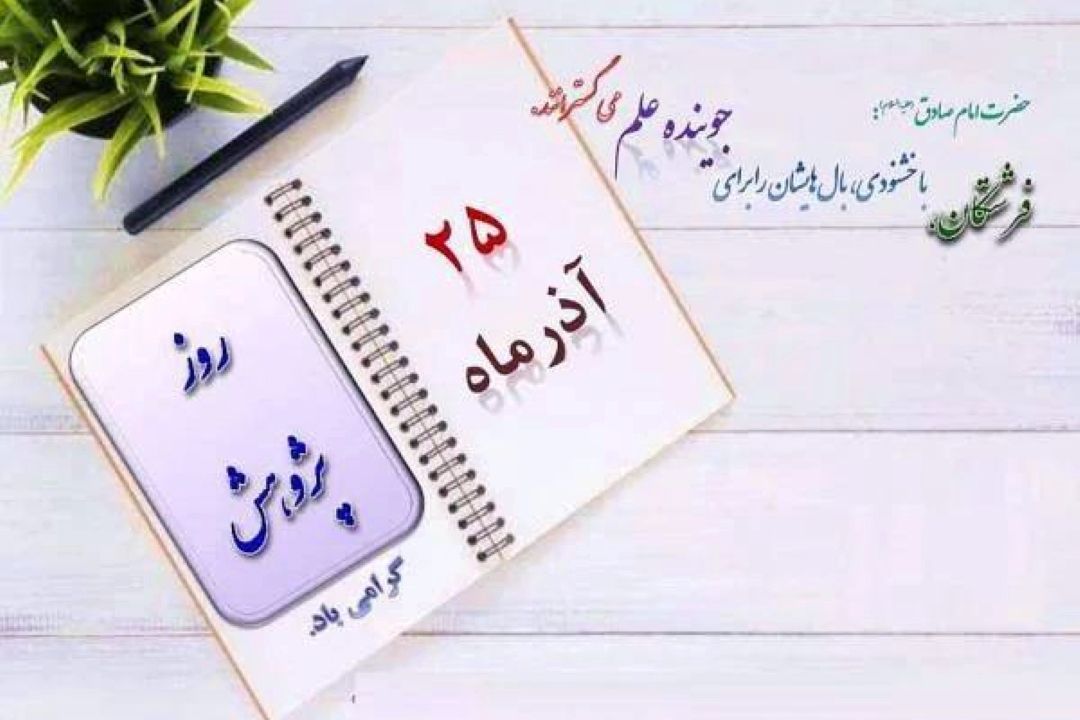 حضرت امام صادق (علیه السلام):
فرشتگان، با خشنودی، بال هایشان را برای
جوینده علم می گسترانند.
۲۵
آذر ماه
روز
پژوهش
گرامی باد.